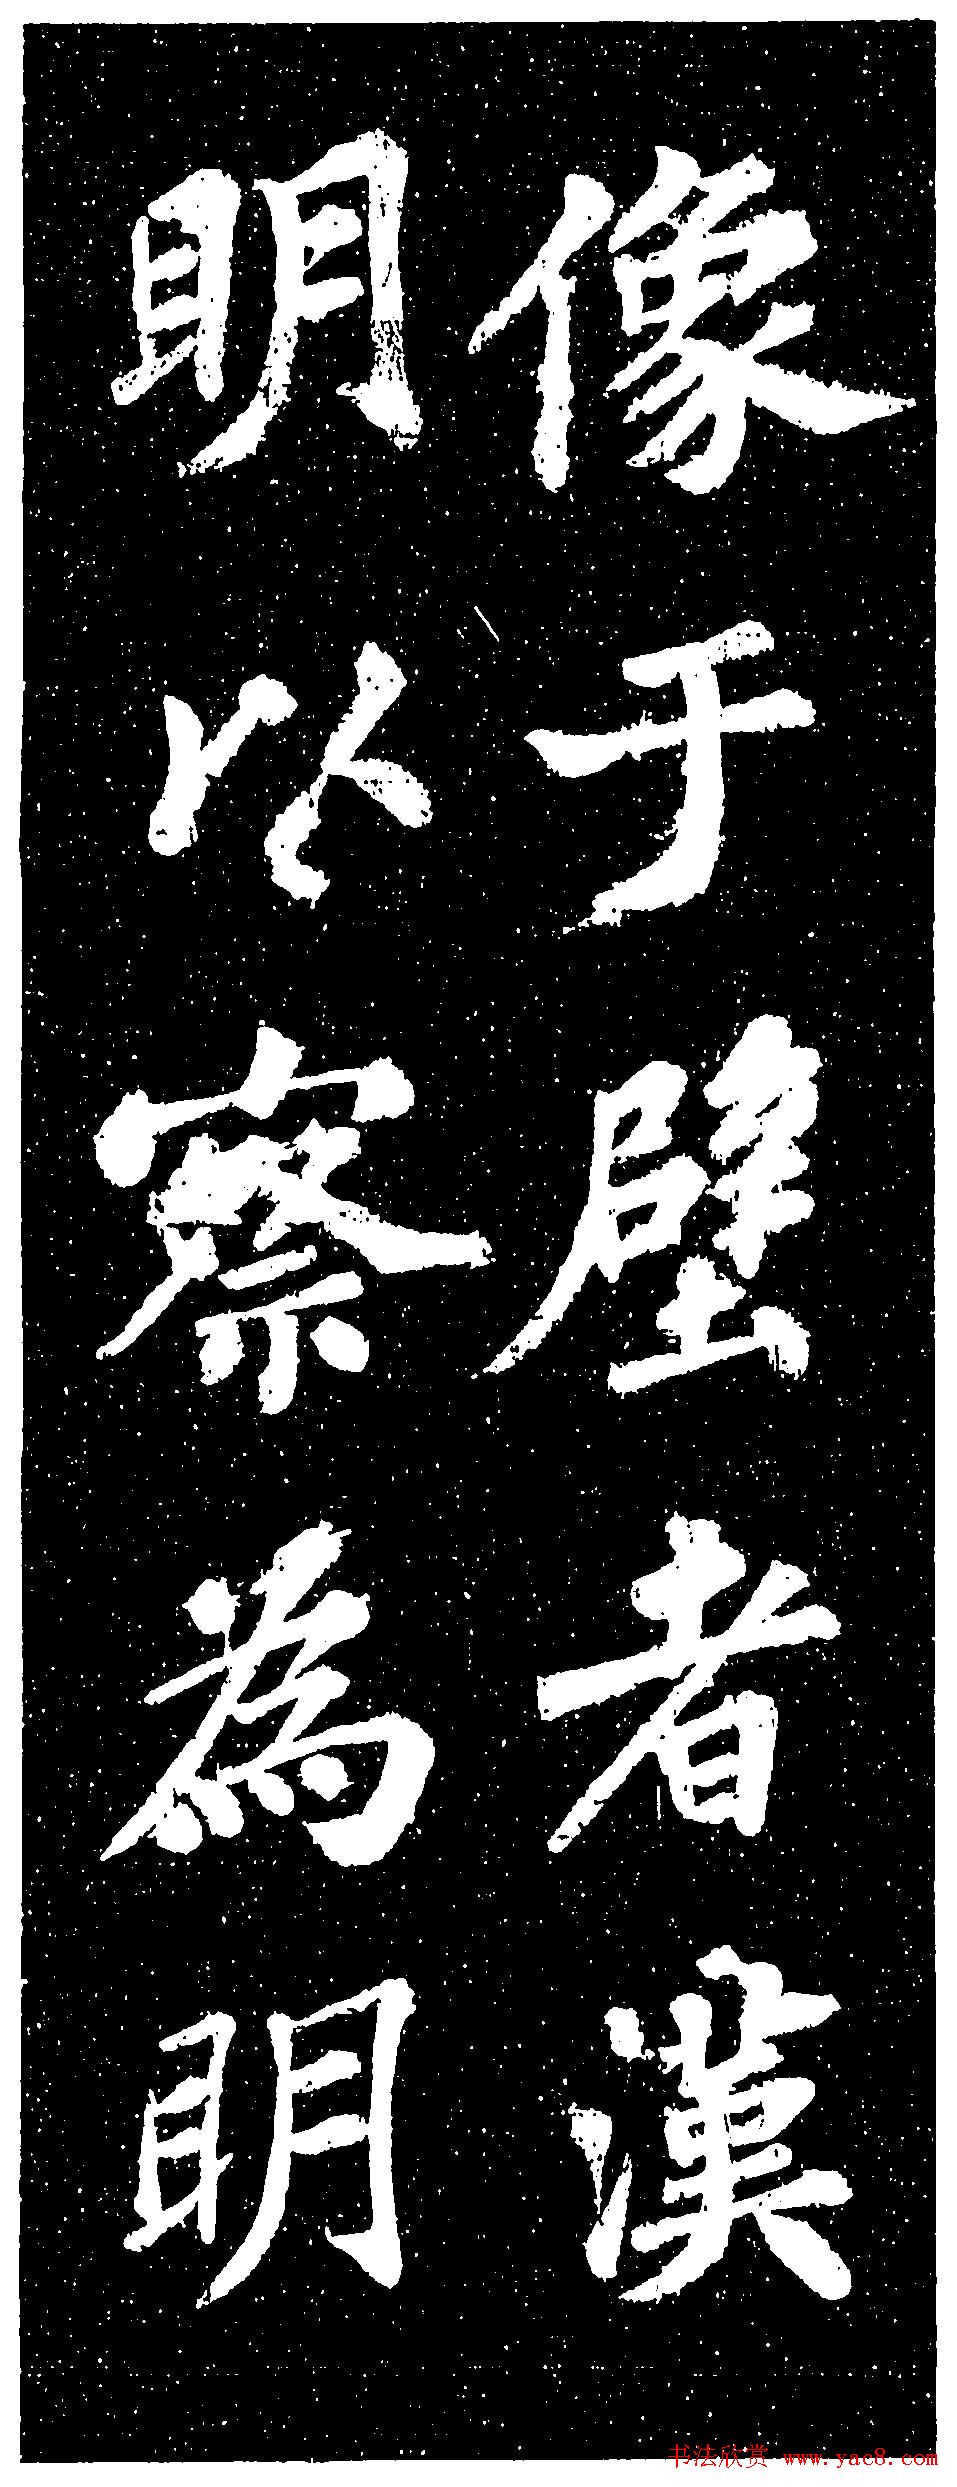 像于壁者漢
明以察為明
书法欣赏 www.yac8.com